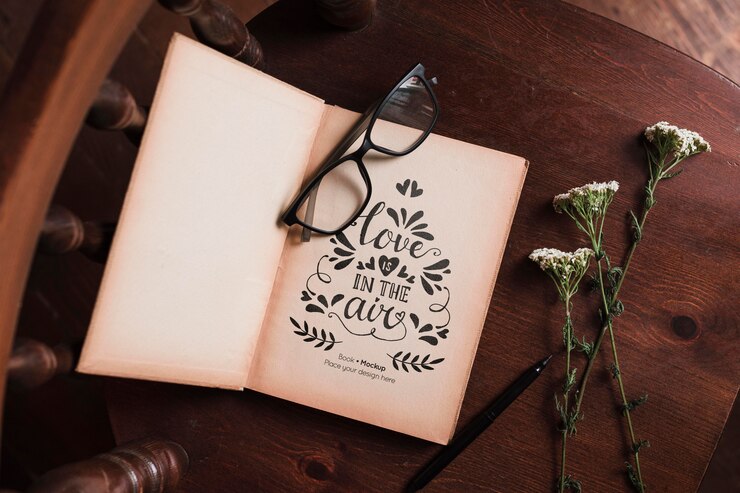 love
IS
IN THE
air
Book • Mockup
Place your design here